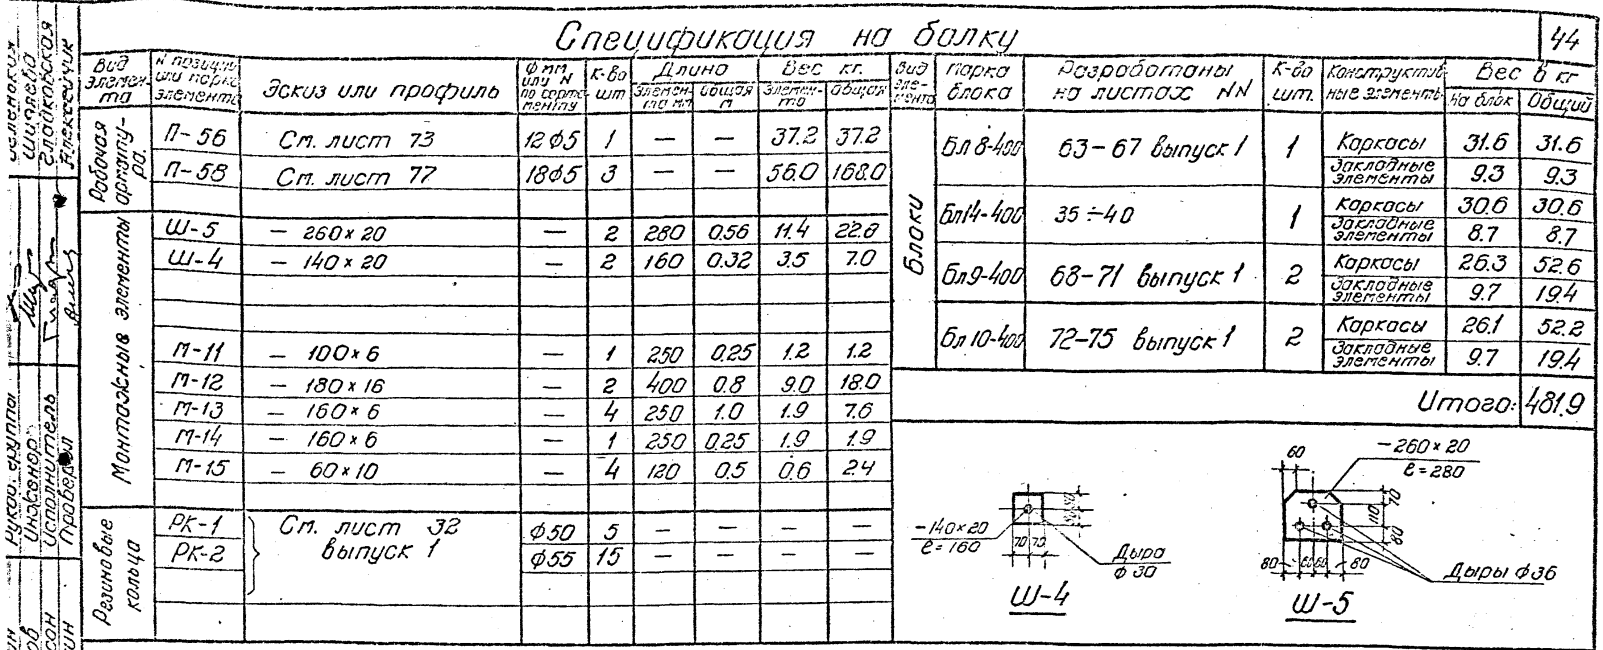 Спецификация на балку
44
Вид элемента | № позиции или марка элемента | Эскиз или профиль | Ф мм или № по сортаменту | К-во шт. | Длина элемента мм | Длина общая м | Вес кг. элемента | Вес кг. общая
Рабочая арматура.
П-56 См. лист 73 12Ф5 1 — — 37.2 37.2
П-58 См. лист 77 18Ф5 3 — — 56.0 168.0
Монтажные элементы
Ш-5 — 260×20 — 2 280 0.56 11.4 22.8
Ш-4 — 140×20 — 2 160 0.32 3.5 7.0
М-11 — 100×6 — 1 250 0.25 1.2 1.2
М-12 — 180×16 — 2 400 0.8 9.0 18.0
М-13 — 160×6 — 4 250 1.0 1.9 7.6
М-14 — 160×6 — 1 250 0.25 1.9 1.9
М-15 — 60×10 — 4 120 0.5 0.6 2.4
Резиновые кольца
РК-1 См. лист 32 Ф50 5 — — — —
РК-2 выпуск 1 Ф55 15 — — — —
Вид элемента | Марка блока | Разработаны на листах №№ | К-во шт. | Конструктивные элементы | Вес в кг На блок | Общий
Блоки
Бл8-400 63-67 выпуск 1 1 Каркасы 31.6 31.6
Закладные элементы 9.3 9.3
Бл14-400 35÷40 1 Каркасы 30.6 30.6
Закладные элементы 8.7 8.7
Бл9-400 68-71 выпуск 1 2 Каркасы 26.3 52.6
Закладные элементы 9.7 19.4
Бл10-400 72-75 выпуск 1 2 Каркасы 26.1 52.2
Закладные элементы 9.7 19.4
Итого: 481.9
-140×20
ℓ=160
70 70
Дыра
ф 30
Ш-4
60
-260×20
ℓ=280
70
110
80
80 60 60 80
Дыры ф36
Ш-5
Рук. группы
Инженер
Исполнитель
Проверил
Шипаева
Гладковская
Алексейчик